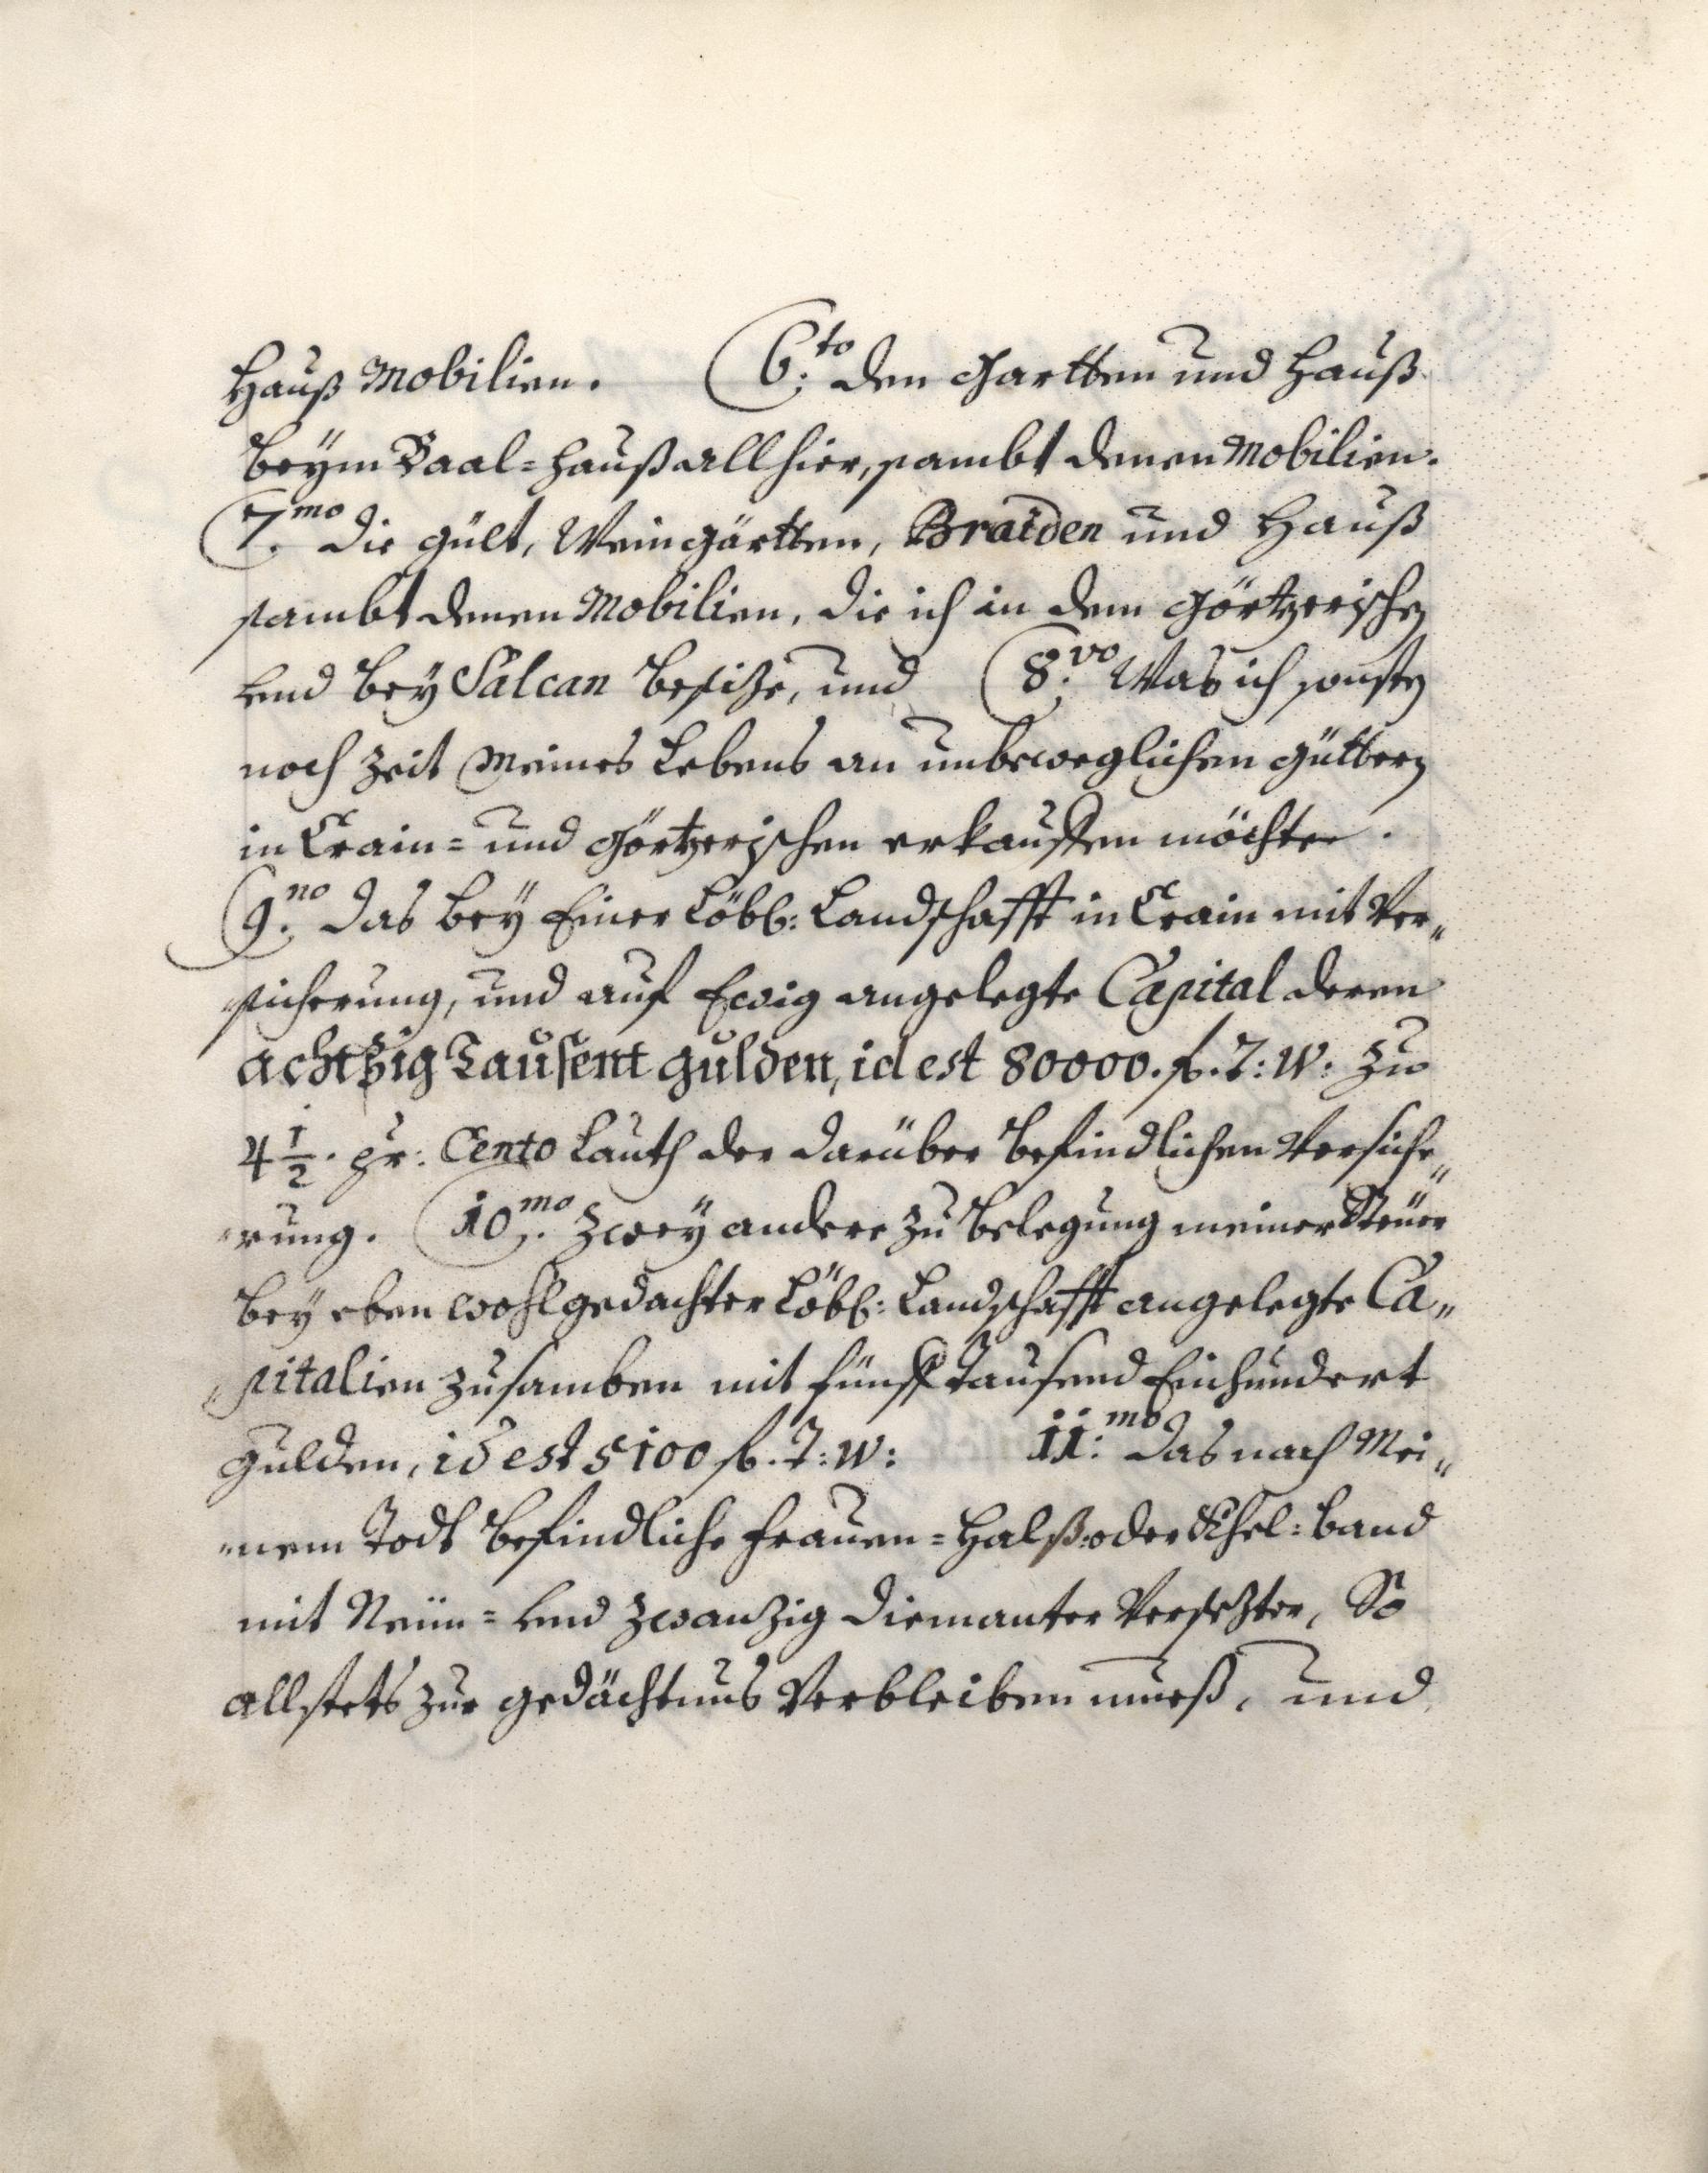 Hauß Mobilien. 6:to den Gartten und Hauß
beÿm Baal=hauß allhier, sambt denen Mobilien.
7.mo die gült, Weingärtten, Braiden und Hauß
sambt denen Mobilien, die ich in dem Görtzerischen
und beÿ Salcan besize, und 8.vo Was ich sonsten
noch zeit Meines Lebens an unbeweglichen güttern
in Crain= und Görtzerischen erkauffen möchte.
9.no das beÿ Einer Löbl: Landschafft in Crain mit Ver„
sicherung, und auf Ewig angelegte Capital deren
achtzig Tausent gulden, id est 80000. fl. T: W: zu
4 1/2. pr: Cento Lauth der darüber befindlichen Versiche„
„rung. 10.mo Zweÿ andere zu belegung meiner Steuer
beÿ eben wohlgedachter Löbl: Landschafft angelegte Ca„
„pitalien zusamben mit fünff Tausend Einhundert
gulden, id est 5100 fl. T: W: 11:mo das nach Mei„
„nem Todt befindliche frauen=Halß: oder Khel=band
mit Neün= und zwanzig diemanter Versezter, So
allstets zur gedächtnus Verbleiben mueß, und